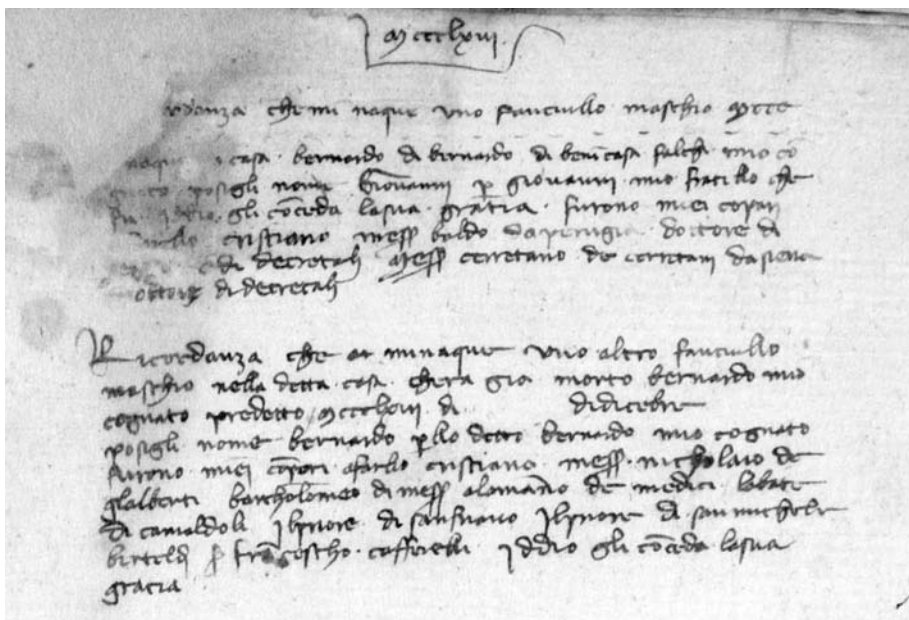 Mccclxvi
rdanza che mi naque uno fanciullo maschio Mccc
naque casa bernardo di bernardo di benicasa falchi mio co
posigli nome Giovanni p giovanni mio fratello che
iddio gli cōceda lasua gratia furono miei copari
cristiano mess baldo daperugia dottore di
e di decretali Mess cerretano de cerretani dasiena
dottore di decretali
Ricordanza che minaque uno altro fanciullo
maschio nella detta casa chera gia morto bernardo mio
cognato predetto Mccclxvi di didicēbre
posigli nome bernardo pllo detto bernardo mio cognato
furono miei cōpari afarllo cristiano mess nicholaio de
glalberti bartholomeo di mess alamāno de medici labate
di camaldoli ilpriore di ilpriore di san michele
berteldi p frācescho Iddio gli cōceda lasua
gracia